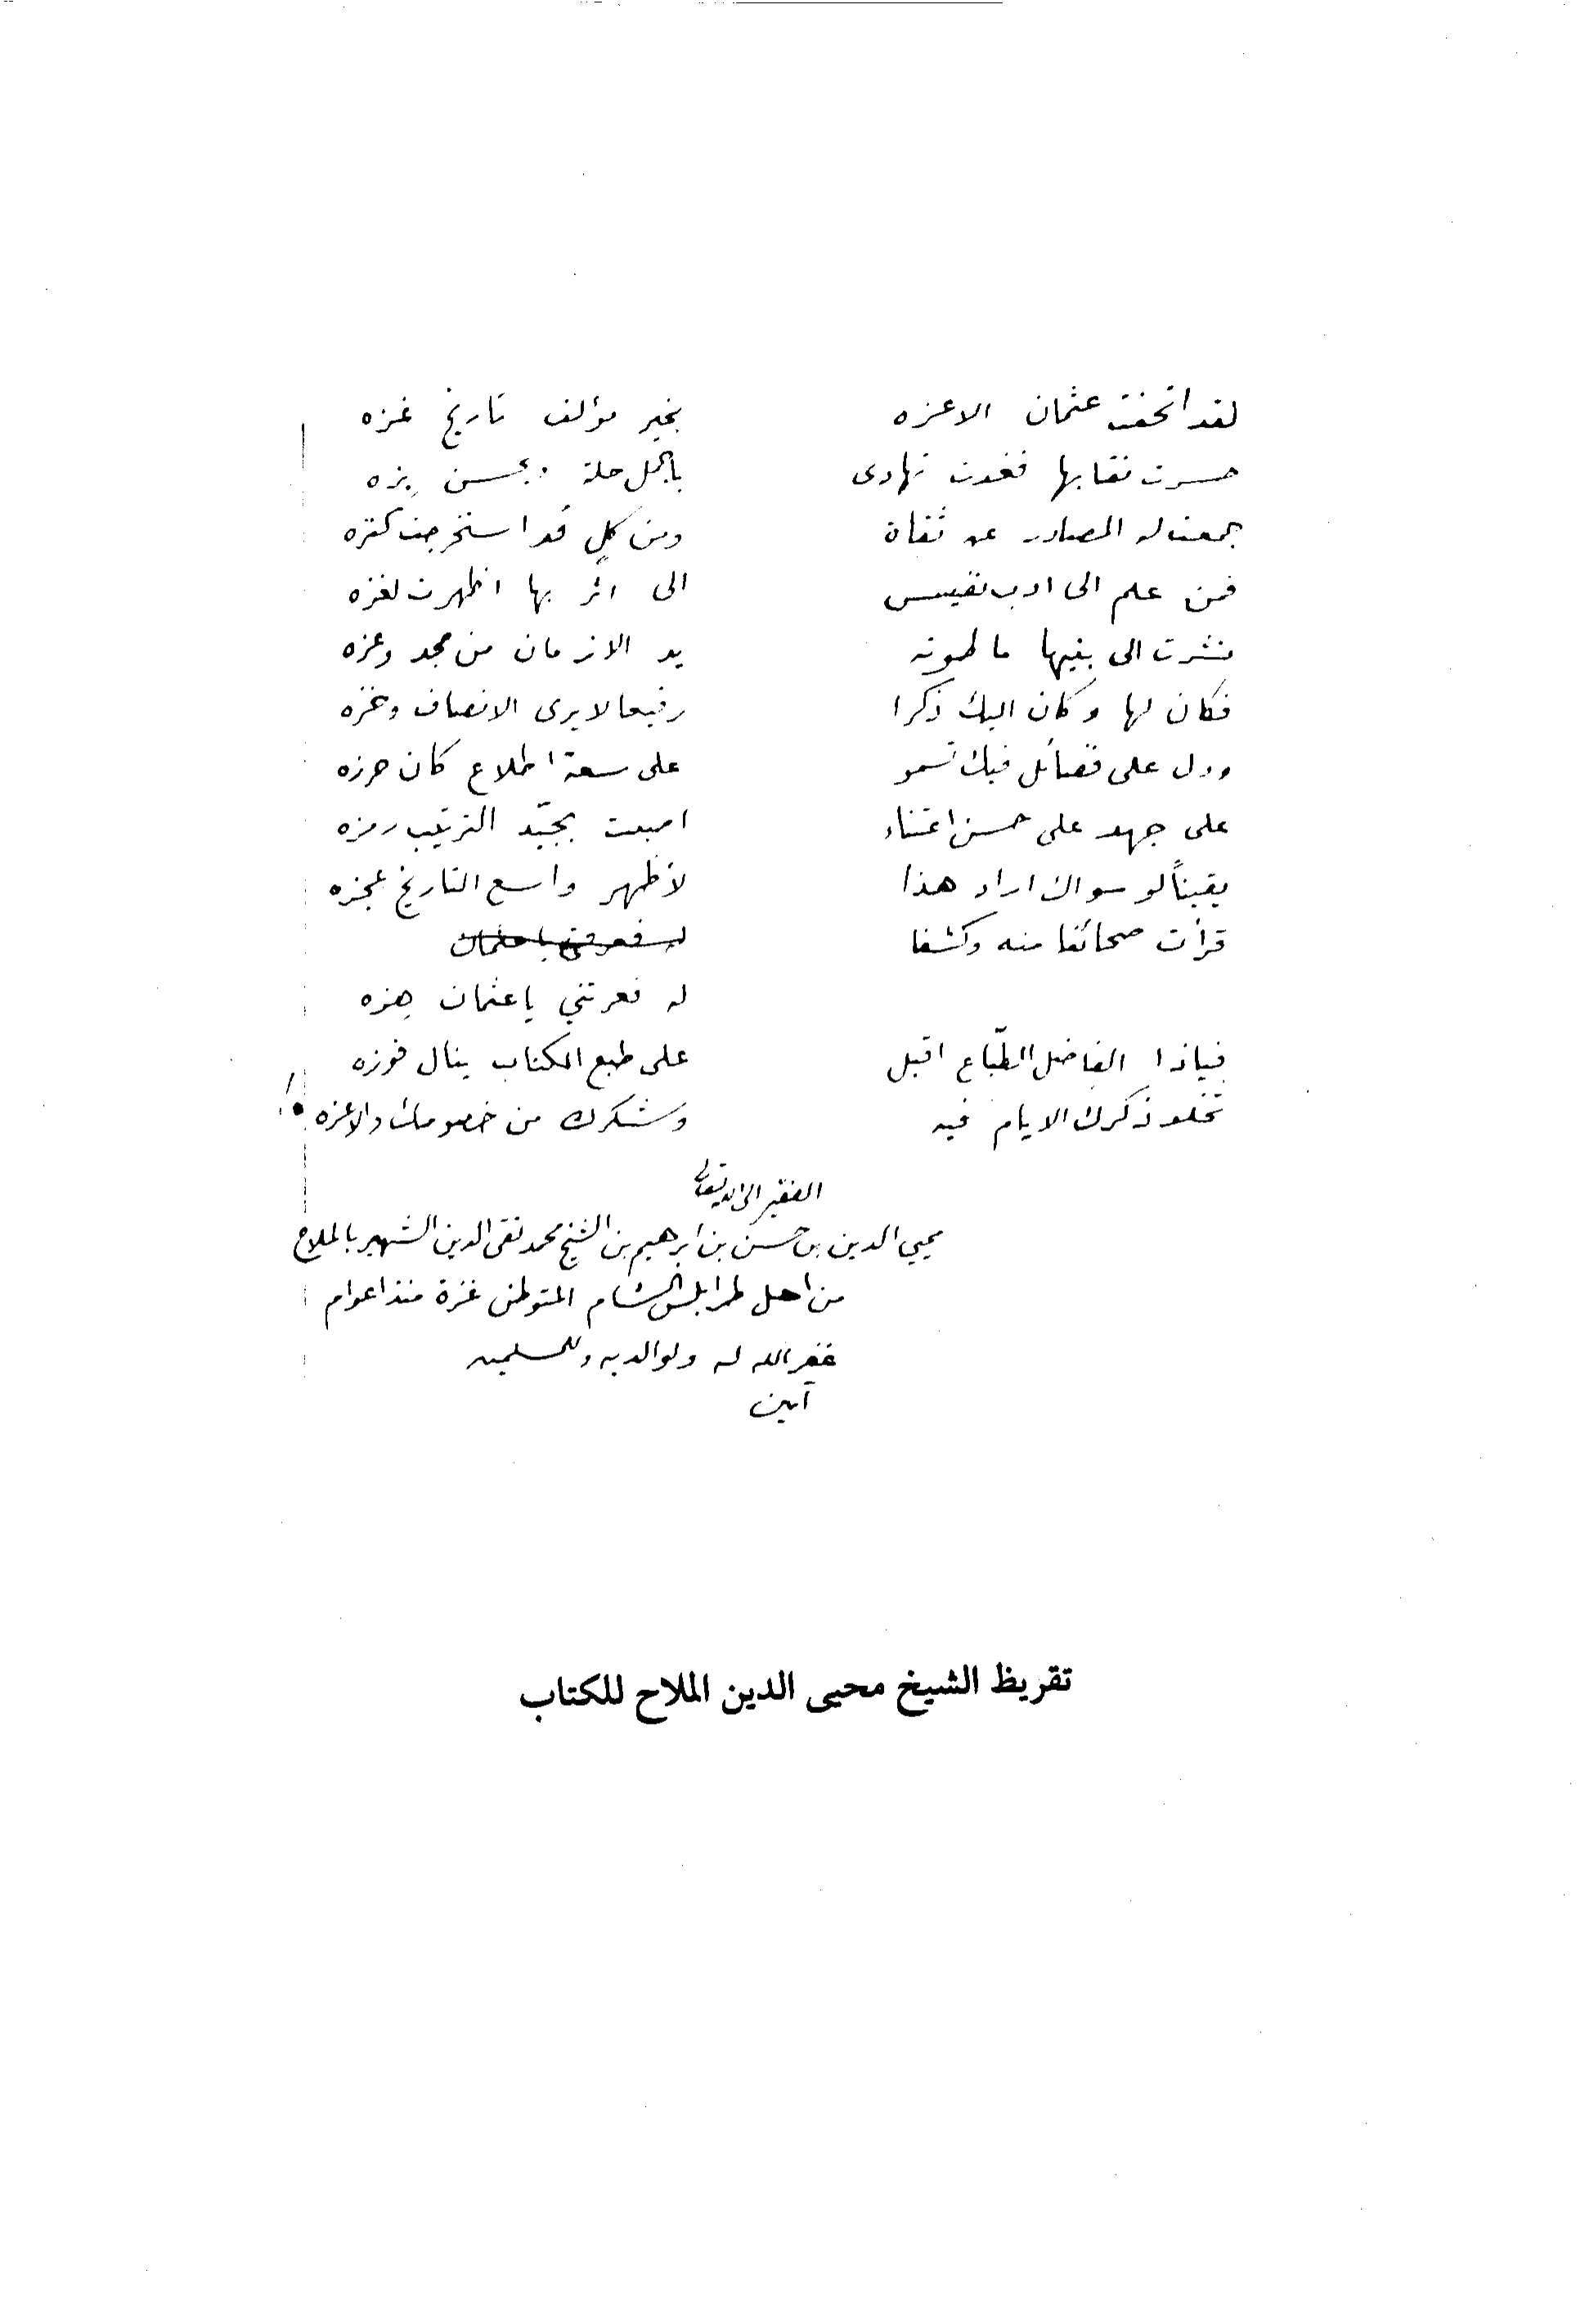 لقد اتحفت عثمان الاعزه بخير مؤلف تاريخ غزه
حسرت نقابها فغدت تهادى باجمل حلة وبحسن بزه
جمعت له المصادر عن ثقاة ومن كلٍ قد استخرجت كنزه
فمن علم الى ادب نفيس الى اثر بها اظهرت لغزه
نشرت الى بنيها ما طوته يد الازمان من مجد وعزه
فكان لها وكان اليك ذكرا رفيعا لا يرى الانصاف وخزه
ودل على فضائل فيك تسمو على سعة اطلاع كان حرزه
على جهد على حسن اعتناء ابنت بجيّد الترتيب رمزه
يقيناً لو سواك اراد هذا لأظهر واسع التاريخ عجزه
قرأت صحائفا منه وكشفا له فعرتني يا عثمان
له فعرتني يا عثمان هزه
فياذا الفاضل الطبّاع اقبل على طبع الكتاب ينال فوزه
تخلد ذكرك الايام فيه وشكرك من خصومك والاعزه
الفقير الى الله تعالى
محيي الدين بن حسن بن ابرهيم بن الشيخ محمد تقي الدين الشهير بالملاح
من اهل طرابلس الشام المتوطن غزة منذ اعوام
غفر الله له ولوالديه وللمسلمين
آمين
تقريظ الشيخ محيي الدين الملاح للكتاب